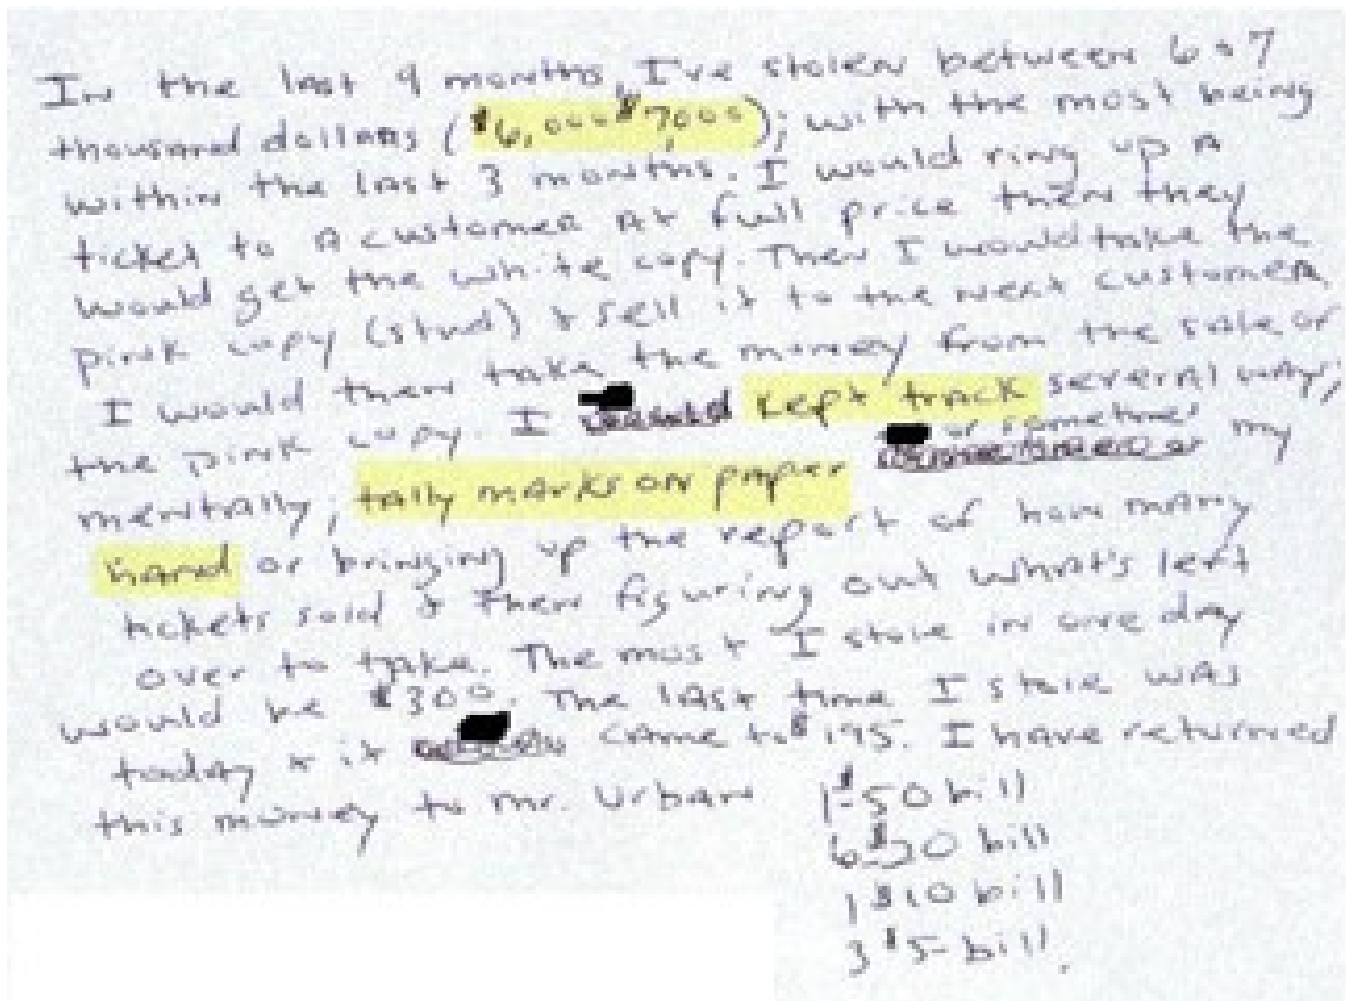 In the last 9 months, I've stolen between 6 & 7
thousand dollars ($6,000 $7,000); with the most being
within the last 3 months. I would ring up a
ticket to a customer at full price then they
would get the white copy. Then I would take the
pink copy (stud) & sell it to the next customer
I would then take the money from the sale of
the pink copy. I kept track several ways;
mentally; tally marks on paper or sometimes my
hand or bringing up the report of how many
tickets sold & then figuring out what's left
over to take. The most I stole in one day
would be $300. The last time I stole was
today & it came to $195. I have returned
this money to Mr. Urban
1-$50 bill
6 $20 bill
1 $10 bill
3 $5- bill.